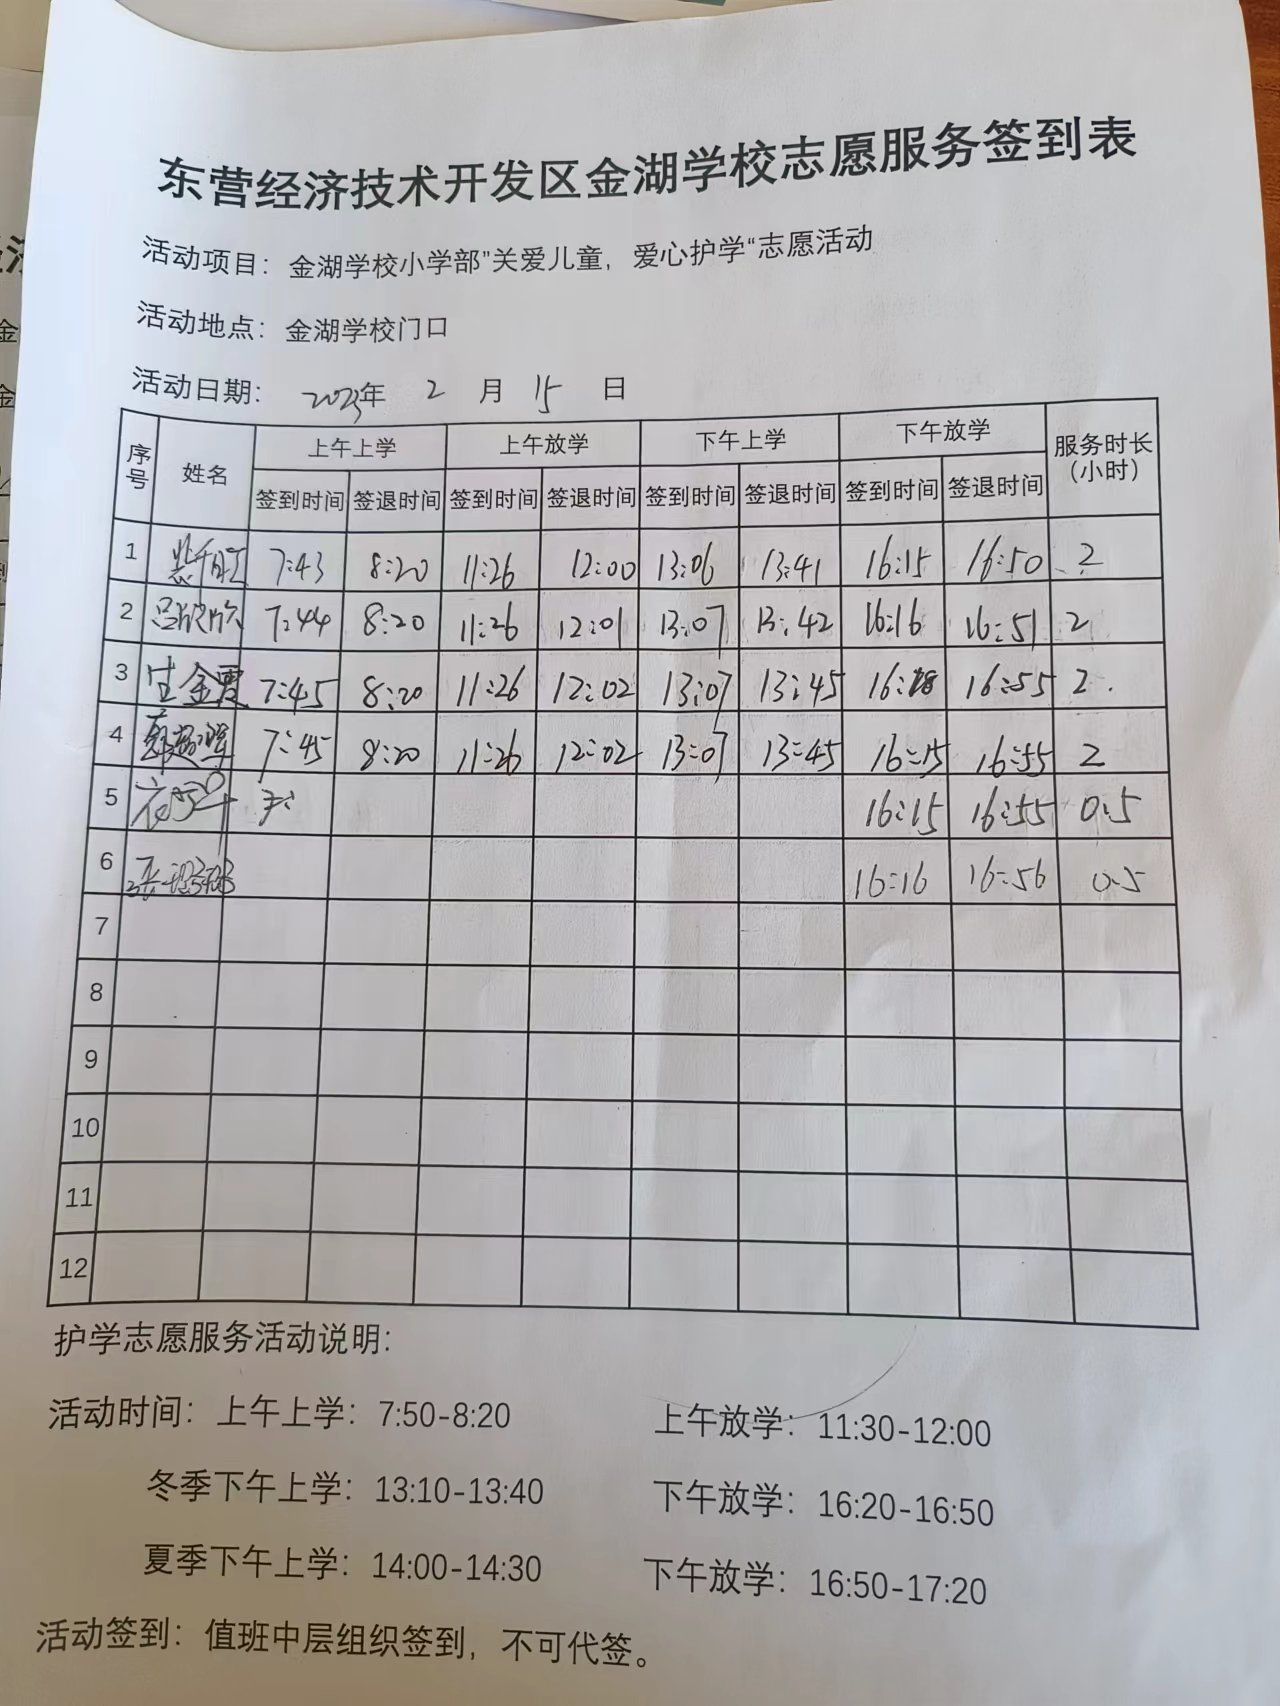 东营经济技术开发区金湖学校志愿服务签到表
活动项目：金湖学校小学部"关爱儿童，爱心护学"志愿活动
活动地点：金湖学校门口
活动日期：2023年 2 月 15 日
序号 姓名 上午上学 上午放学 下午上学 下午放学 服务时长（小时）
签到时间 签退时间 签到时间 签退时间 签到时间 签退时间 签到时间 签退时间
1 7:43 8:20 11:26 12:00 13:06 13:41 16:15 16:50 2
2 吕欣欣 7:44 8:20 11:26 12:01 13:07 13:42 16:16 16:51 2
3 7:45 8:20 11:26 12:02 13:07 13:45 16:18 16:55 2.
4 7:45 8:20 11:26 12:02 13:07 13:45 16:15 16:55 2
5 16:15 16:55 0.5
6 16:16 16:56 0.5
7
8
9
10
11
12
护学志愿服务活动说明：
活动时间：上午上学：7:50-8:20 上午放学：11:30-12:00
冬季下午上学：13:10-13:40 下午放学：16:20-16:50
夏季下午上学：14:00-14:30 下午放学：16:50-17:20
活动签到：值班中层组织签到，不可代签。